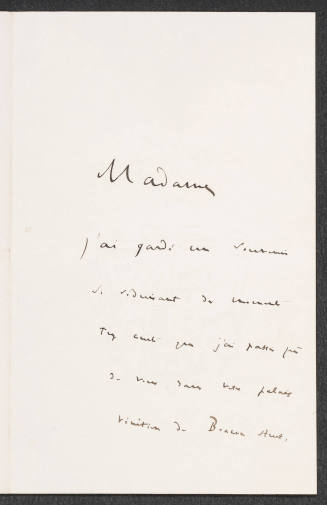 Madame
j'ai gardé un souvenir
si séduisant du moment
trop court que j'ai passé près
de vous dans votre palais
vénitien de Beacon Street.